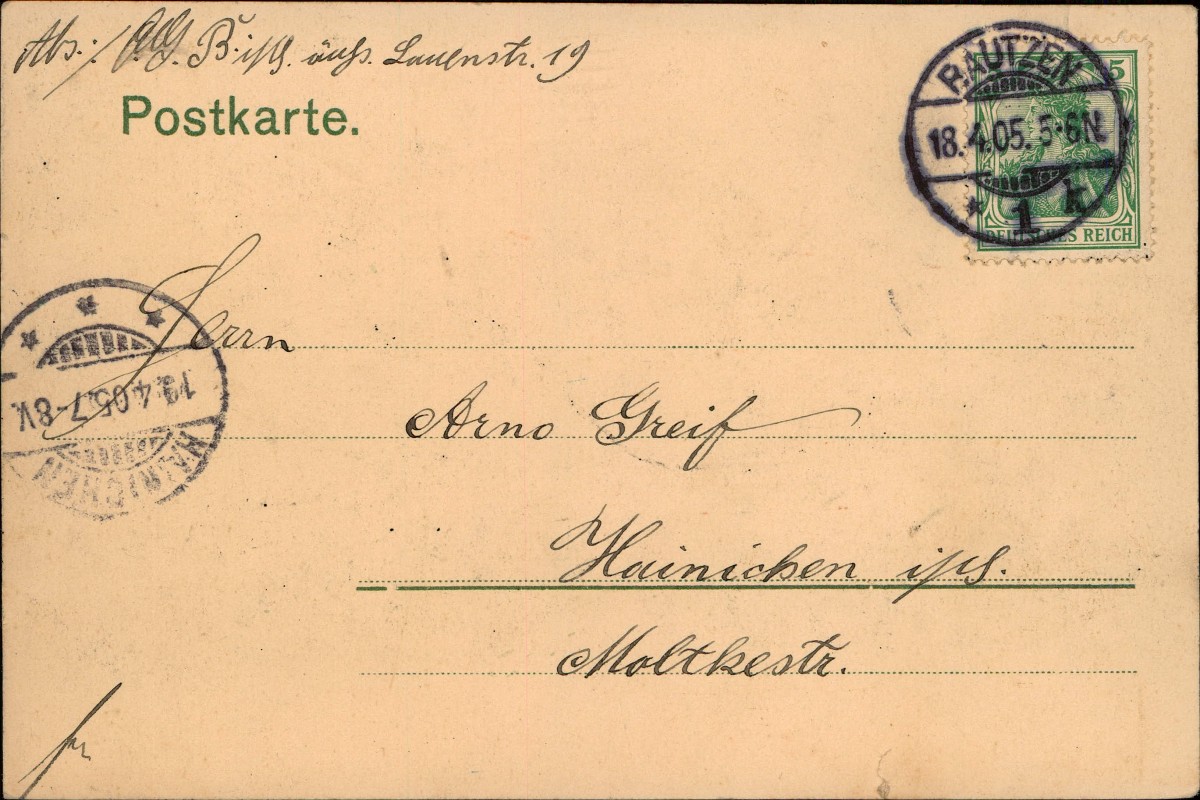 Abs.: B. i/S. äuß. Lauenstr. 19
Postkarte.
BAUTZEN
18.4.05. 5-6N.
* 1 k
5
DEUTSCHES REICH
Herrn
19.4.05.7-8V.
HAINICHEN
Arno Greif
Hainichen i/S.
Moltkestr.
fr